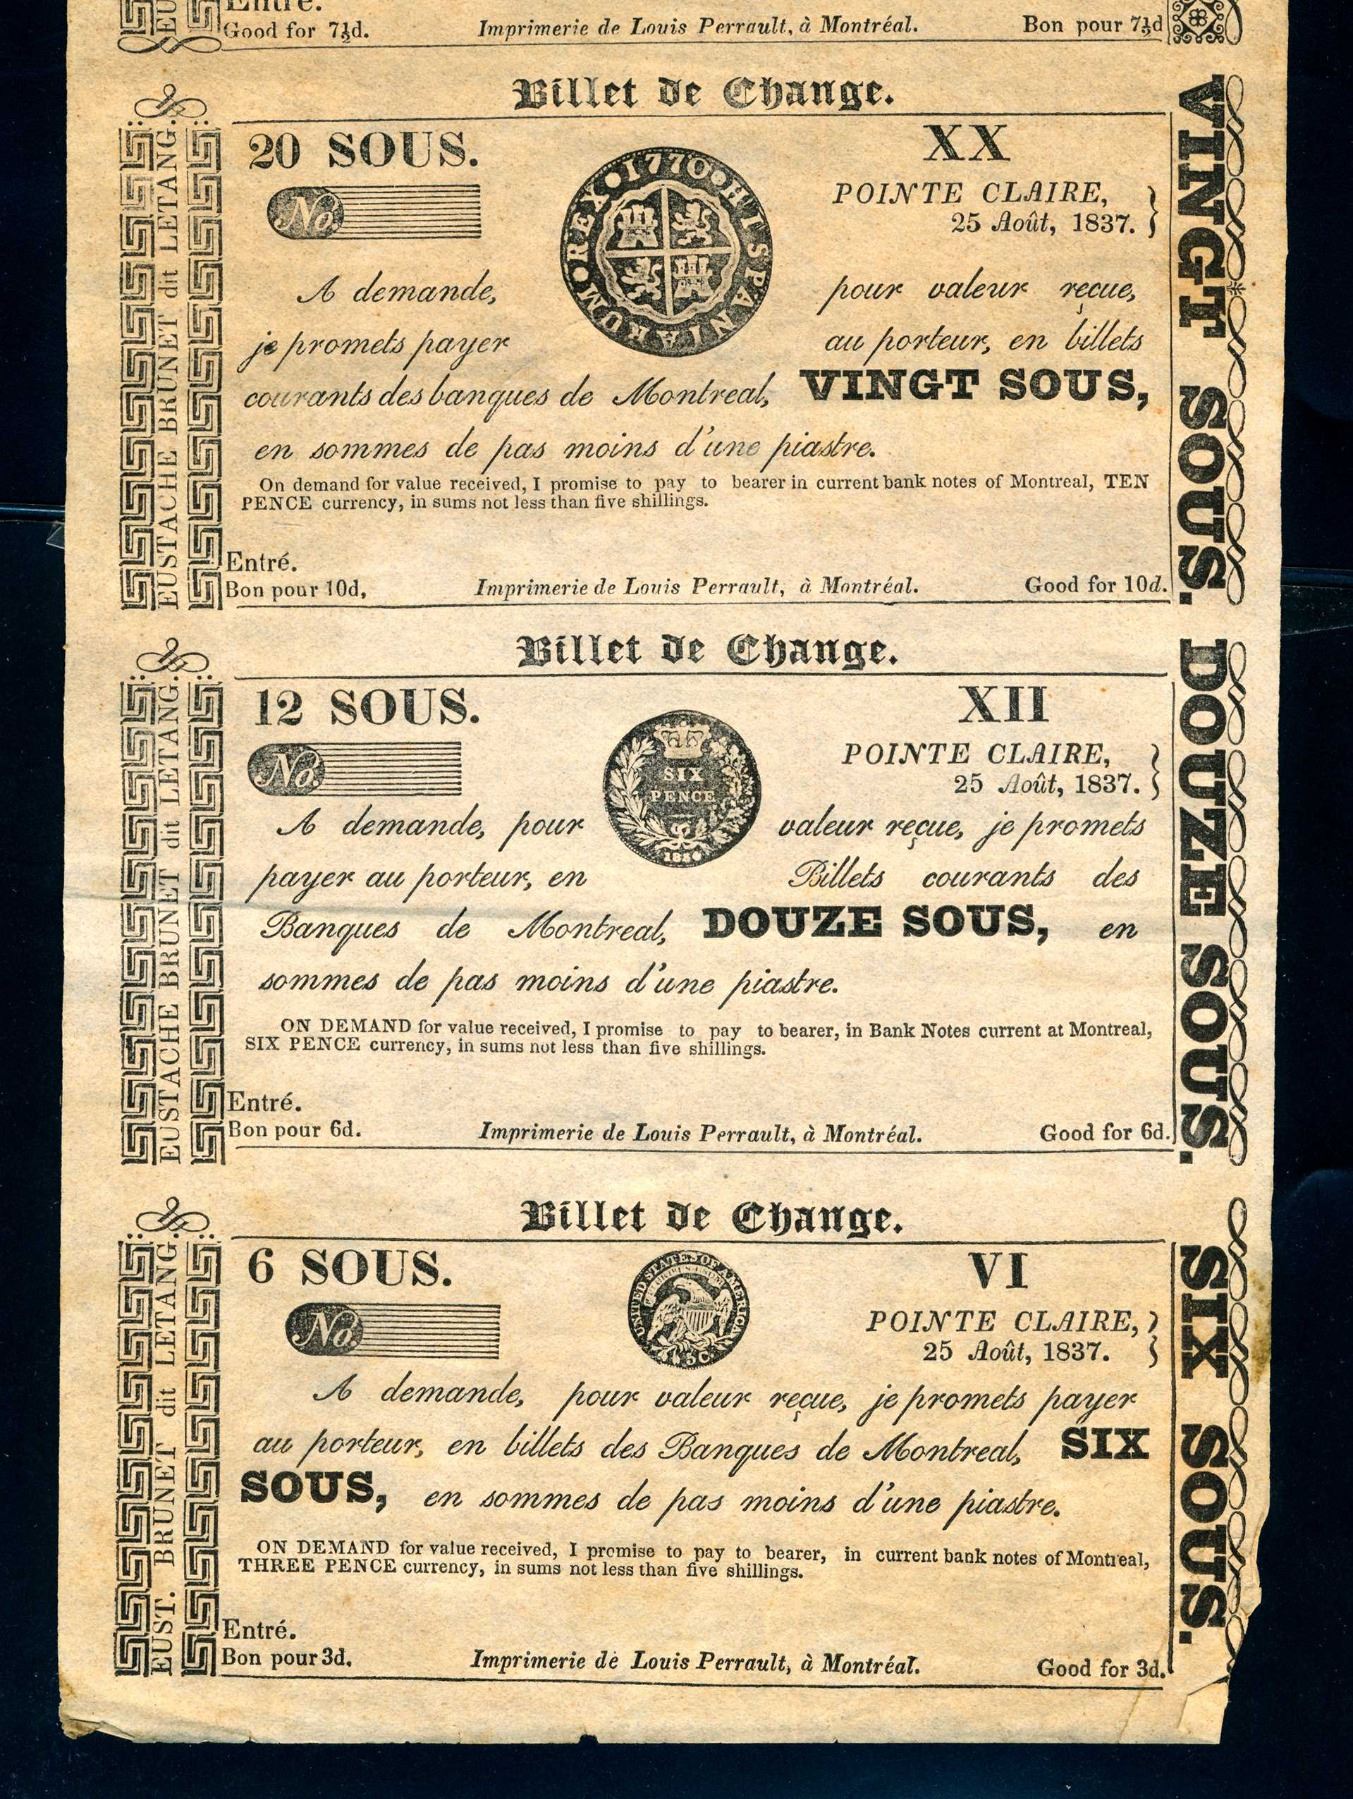 Entré.
Good for 7½d. Imprimerie de Louis Perrault, à Montréal. Bon pour 7½d
Billet de Change.
20 SOUS. XX
No. POINTE CLAIRE,
25 Août, 1837.
1770 HISPANIARUM REX
A demande, pour valeur reçue,
je promets payer au porteur, en billets
courants des banques de Montreal, VINGT SOUS,
en sommes de pas moins d'une piastre.
On demand for value received, I promise to pay to bearer in current bank notes of Montreal, TEN
PENCE currency, in sums not less than five shillings.
Entré.
Bon pour 10d, Imprimerie de Louis Perrault, à Montréal. Good for 10d.
EUSTACHE BRUNET dit LETANG.
VINGT SOUS.
Billet de Change.
12 SOUS. XII
No. POINTE CLAIRE,
25 Août, 1837.
SIX
PENCE
A demande, pour valeur reçue, je promets
payer au porteur, en Billets courants des
Banques de Montreal, DOUZE SOUS, en
sommes de pas moins d'une piastre.
ON DEMAND for value received, I promise to pay to bearer, in Bank Notes current at Montreal,
SIX PENCE currency, in sums not less than five shillings.
Entré.
Bon pour 6d. Imprimerie de Louis Perrault, à Montréal. Good for 6d.
EUSTACHE BRUNET dit LETANG.
DOUZE SOUS.
Billet de Change.
6 SOUS. VI
No. POINTE CLAIRE,
25 Août, 1837.
UNITED STATES OF AMERICA
5 C.
A demande, pour valeur reçue, je promets payer
au porteur, en billets des Banques de Montreal, SIX
SOUS, en sommes de pas moins d'une piastre.
ON DEMAND for value received, I promise to pay to bearer, in current bank notes of Montreal,
THREE PENCE currency, in sums not less than five shillings.
Entré.
Bon pour 3d. Imprimerie de Louis Perrault, à Montréal. Good for 3d.
EUST. BRUNET dit LETANG.
SIX SOUS.